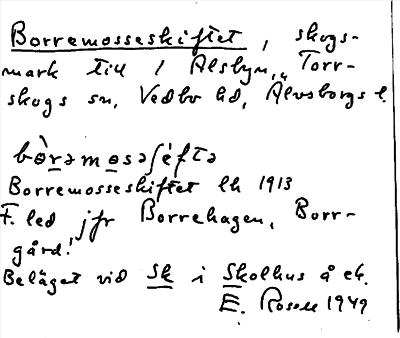 Borremosseskiftet, skogs-
mark till 1 Alsbyn, Torr-
skogs sn, Vedbo hd, Älvsborgs l.
bə̀rəmosəʃéftə
Borremosseskiftet lh 1913
F. led jfr Borrehagen, Borr-
gård!
Beläget vid Sk i Skolhus å ek.
E. Rosell 1949